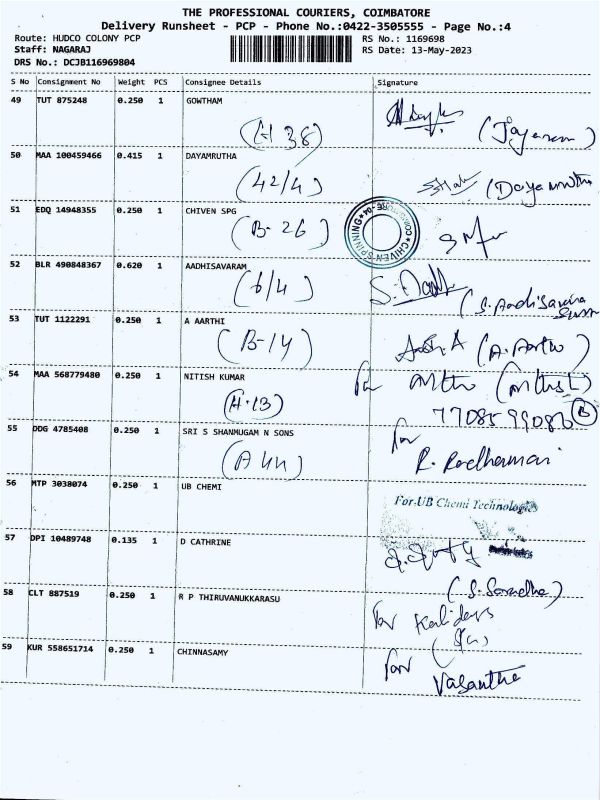 THE PROFESSIONAL COURIERS, COIMBATORE
Delivery Runsheet - PCP - Phone No.:0422-3505555 - Page No.:4
Route: HUDCO COLONY PCP RS No.: 1169698
Staff: NAGARAJ RS Date: 13-May-2023
DRS No.: DCJB116969804
S No Consignment No Weight PCS Consignee Details Signature
49 TUT 875248 0.250 1 GOWTHAM
(H 38) (Jayaram)
50 MAA 100459466 0.415 1 DAYAMRUTHA
(42/4) (Dayamrutha
51 EDQ 14948355 0.250 1 CHIVEN SPG
(B-26) CHIVEN SPINNING
52 BLR 490848367 0.620 1 AADHISAVARAM
(6/4)
53 TUT 1122291 0.250 1 A AARTHI
(B-14)
54 MAA 568779480 0.250 1 NITISH KUMAR for
(H-13)
55 DDG 4785408 0.250 1 SRI S SHANMUGAM N SONS for
(A 44) R. Radhamani
56 MTP 3038074 0.250 1 UB CHEMI
For UB Chemi Technologies
57 DPI 10489748 0.135 1 D CATHRINE
(S. Saradha)
58 CLT 887519 0.250 1 R P THIRUVANUKKARASU
for Kalidass
59 KUR 558651714 0.250 1 CHINNASAMY for
Vasantha